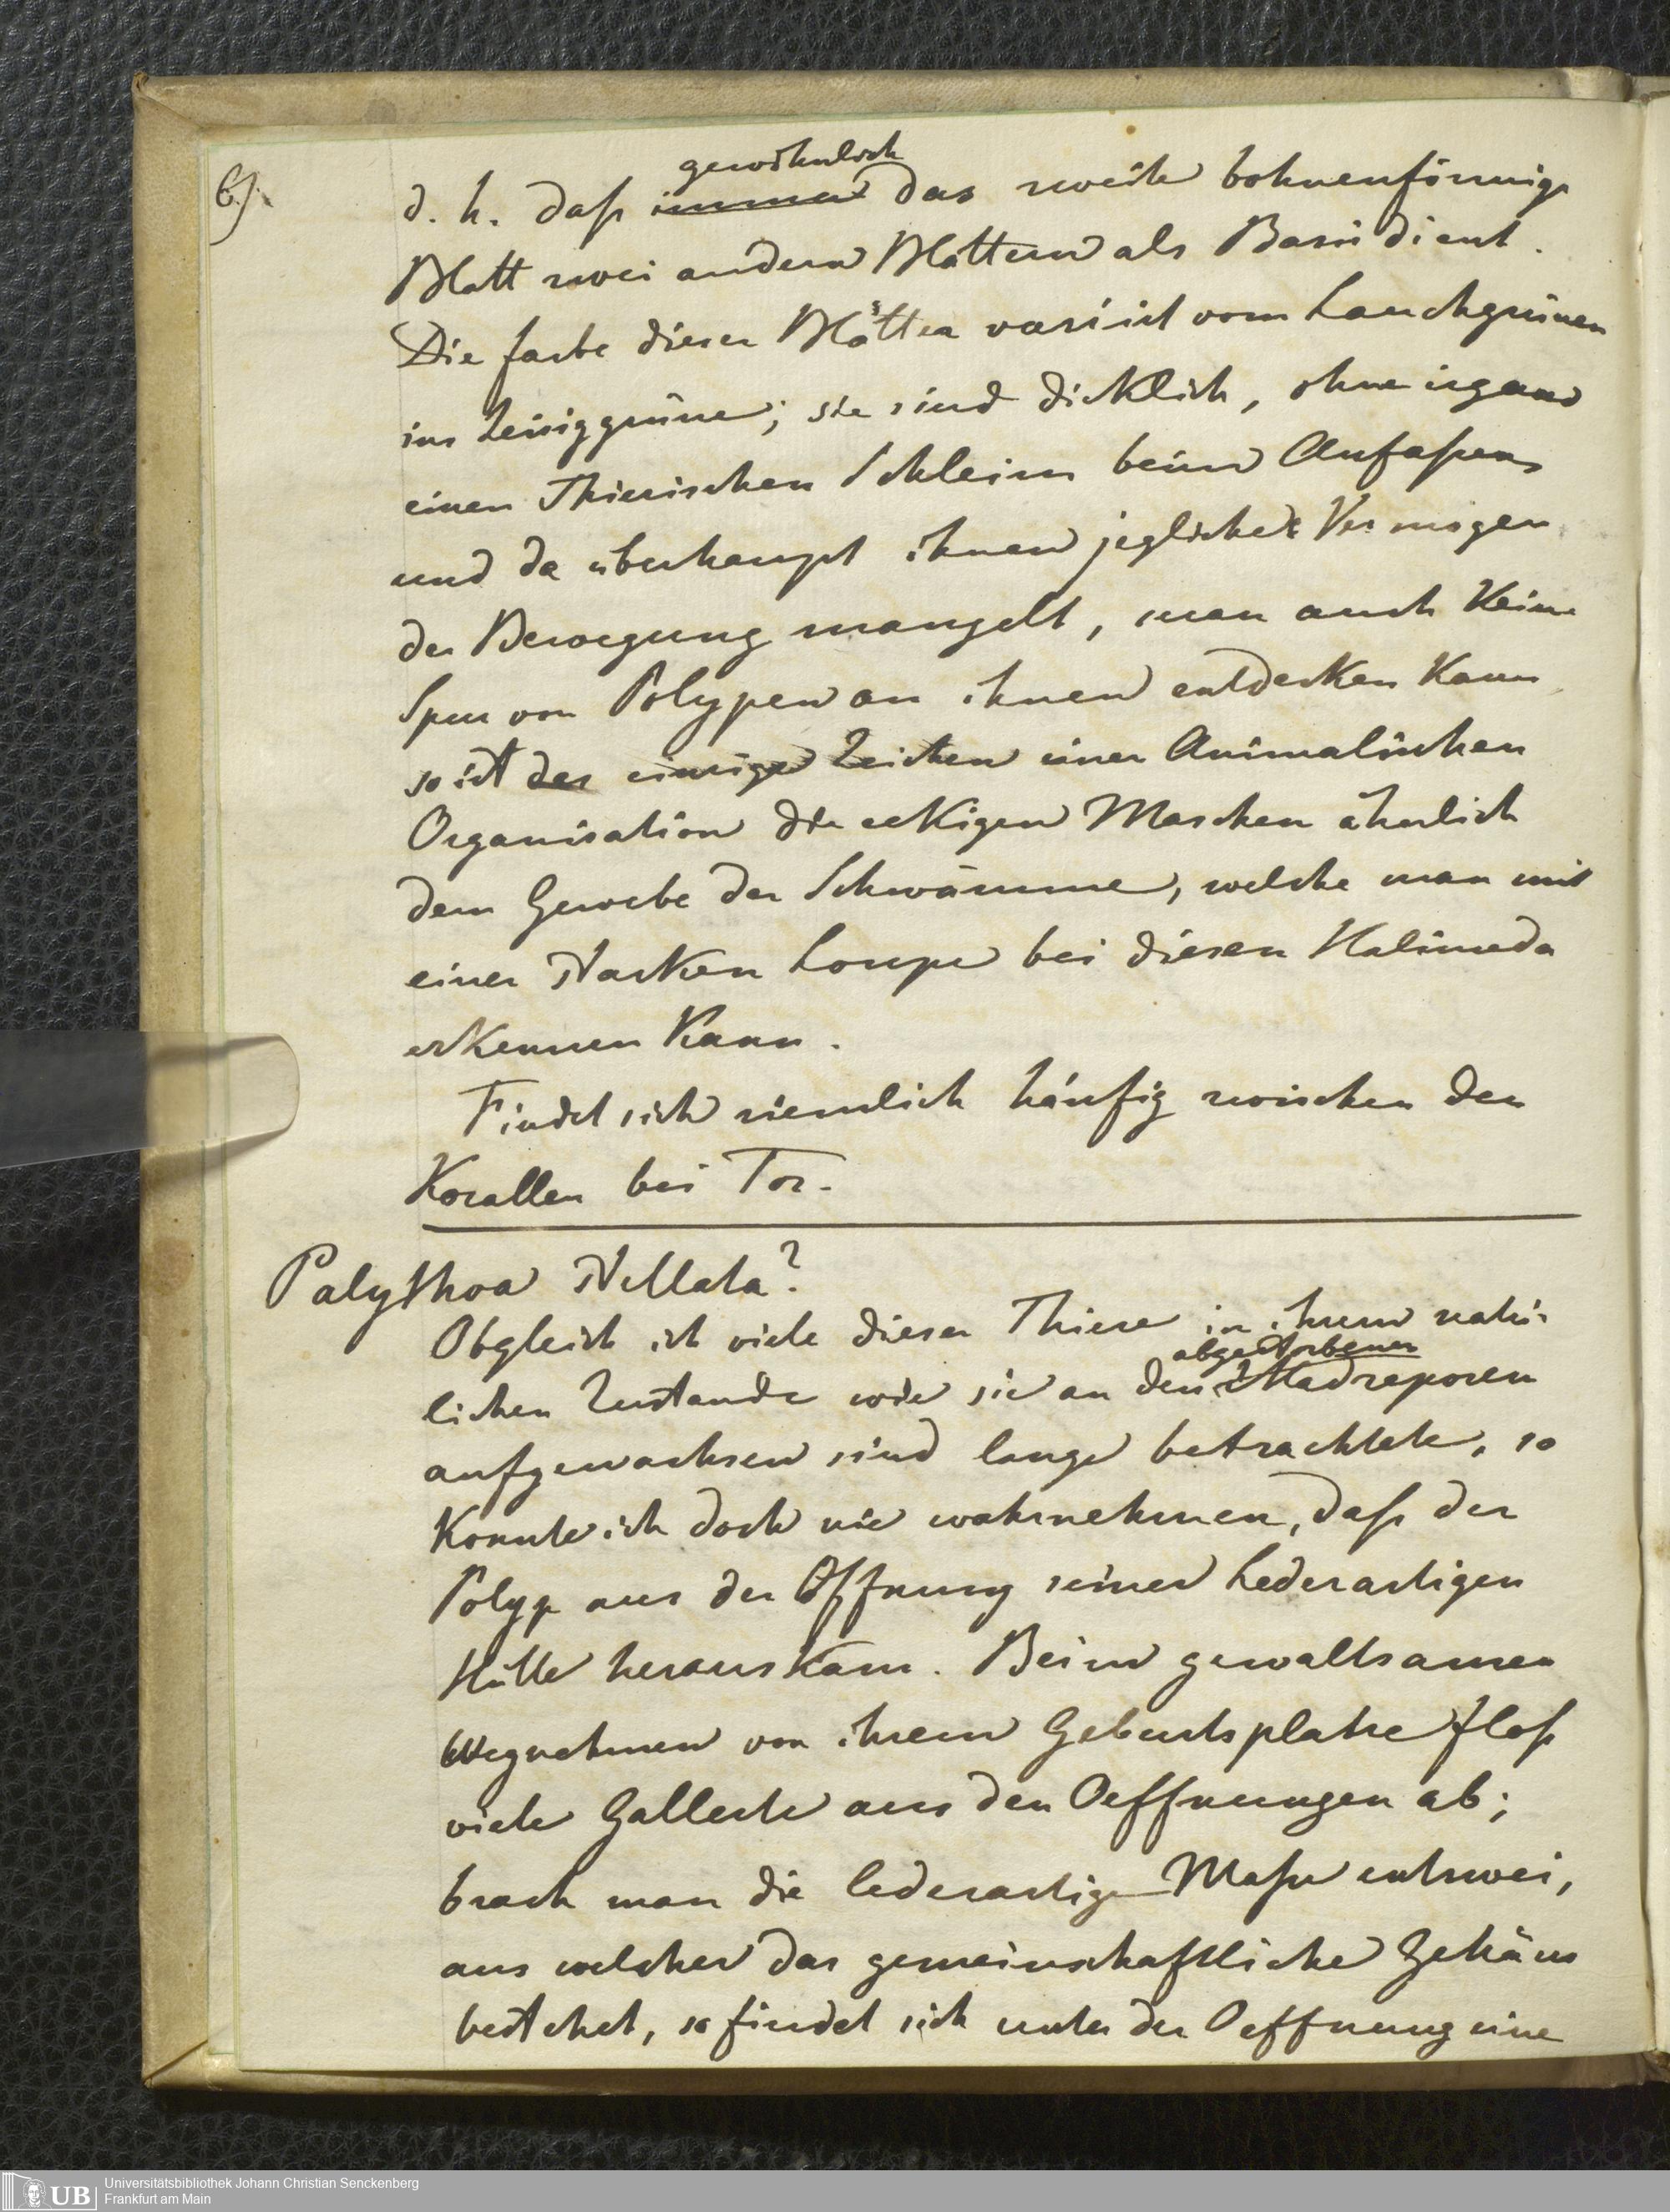 6).
gewöhnlich
d. h. daß immer das zweite bohnenförmige
Blatt zwei andern Blättern als Basis dient.
Die farbe dieser Blätter variirt vom Lauchgrünen
ins Zeisiggrüne; sie sind dicklich, ohne irgend
einen Thierischen Schleim beim Anfaßens
und da überhaupt ihnen jegliches Vermögen
der Bewegung mangelt, man auch Keine
Spur von Polypen an ihnen entdecken Kann
so ist das einzige Zeichen einer Animalischen
Organisation die eckigen Maschen ähnlich
dem Gewebe der Schwämme, welche man mit
einer starken Loupe bei diesen Halimeda
erkennen Kann.
Findet sich ziemlich häufig zwischen den
Korallen bei Tor.
Palythoa stellata?
Obgleich ich viele dieser Thiere in ihrem natür
abgestorbenen
lichen Zustande wie sie an den Madreporen
aufgewachsen sind lange betrachtete, so
Konnte ich doch nie wahrnehmen, daß der
Polyp aus der Öffnung seiner Lederartigen
Hülle herauskam. Beim gewaltsamen
Wegnehmen von ihrem Geburtsplatze floß
viele Gallerte aus den Oeffnungen ab;
brach man die lederartige Maße entzwei,
aus welcher das gemeinschaftliche Gehäus
bestehet, so findet sich unter der Oeffnung eine
UB
Universitätsbibliothek Johann Christian Senckenberg
Frankfurt am Main